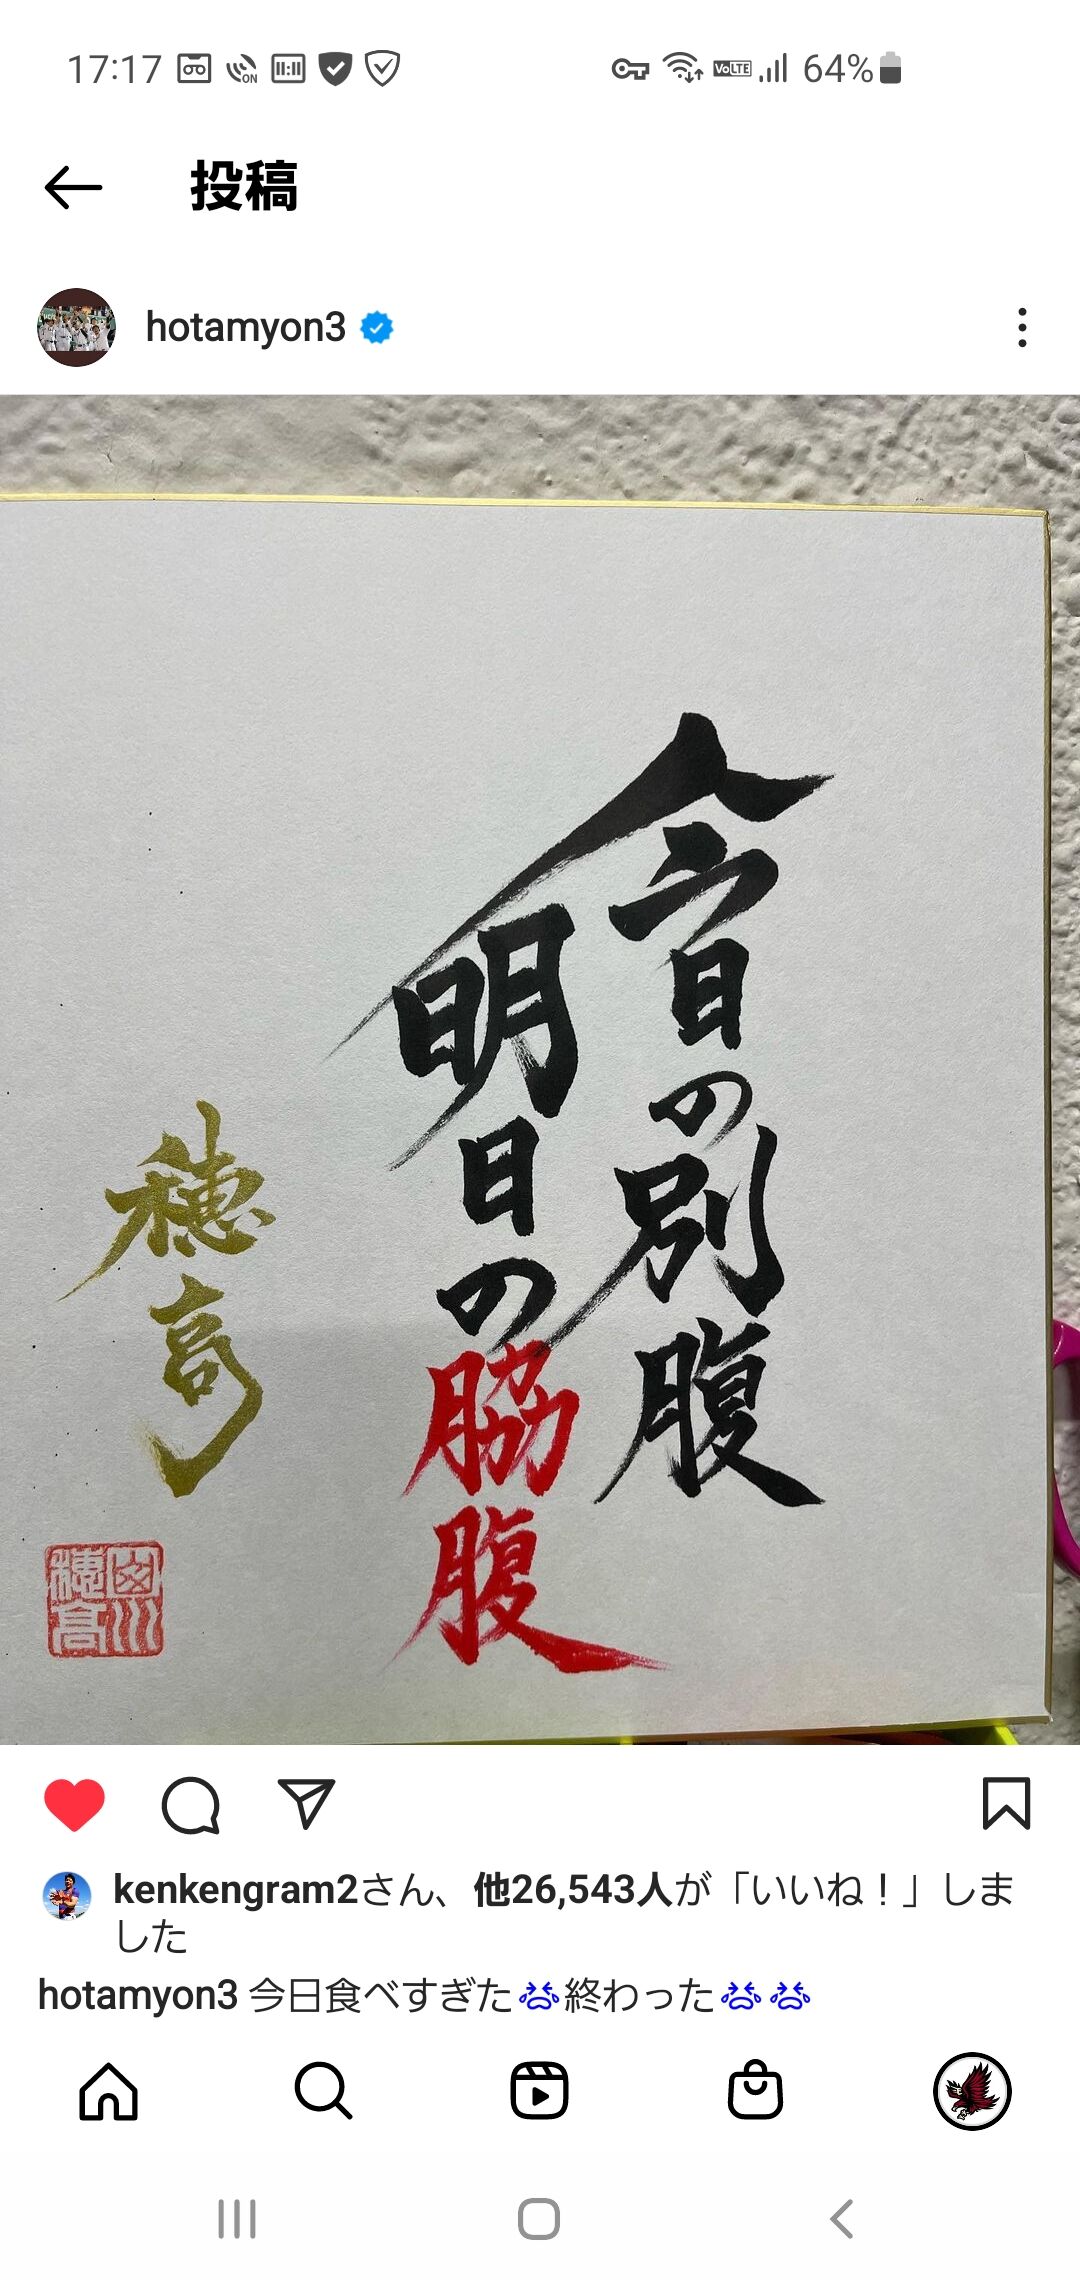 17:17
ON
VoLTE
64%
投稿
hotamyon3
今日の別腹
明日の脇腹
穂高
穂高
kenkengram2さん、他26,543人が「いいね！」しま
した
hotamyon3 今日食べすぎた😭終わった😭😭